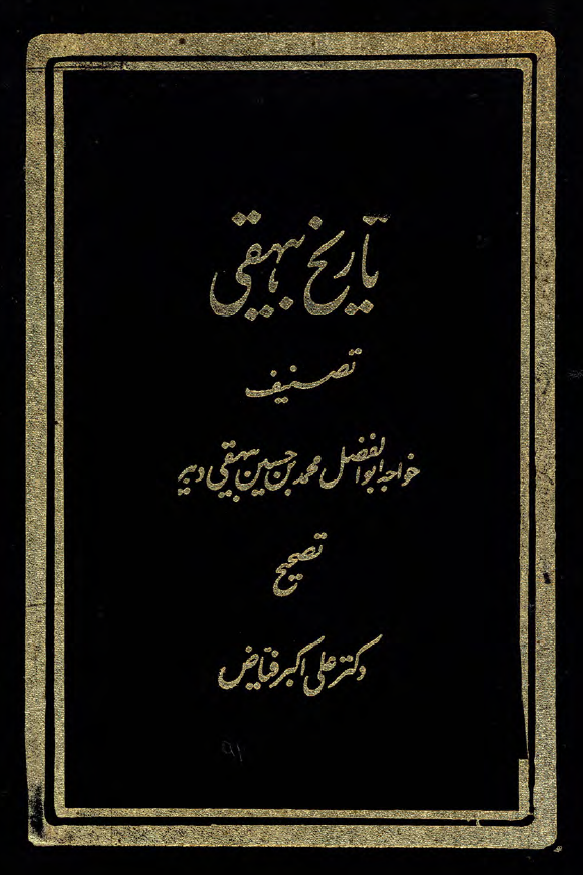 تاریخ بیهقی
تصنیف
خواجه ابوالفضل محمد بن حسین بیهقی دبیر
تصحیح
دکتر علی اکبر فیاض